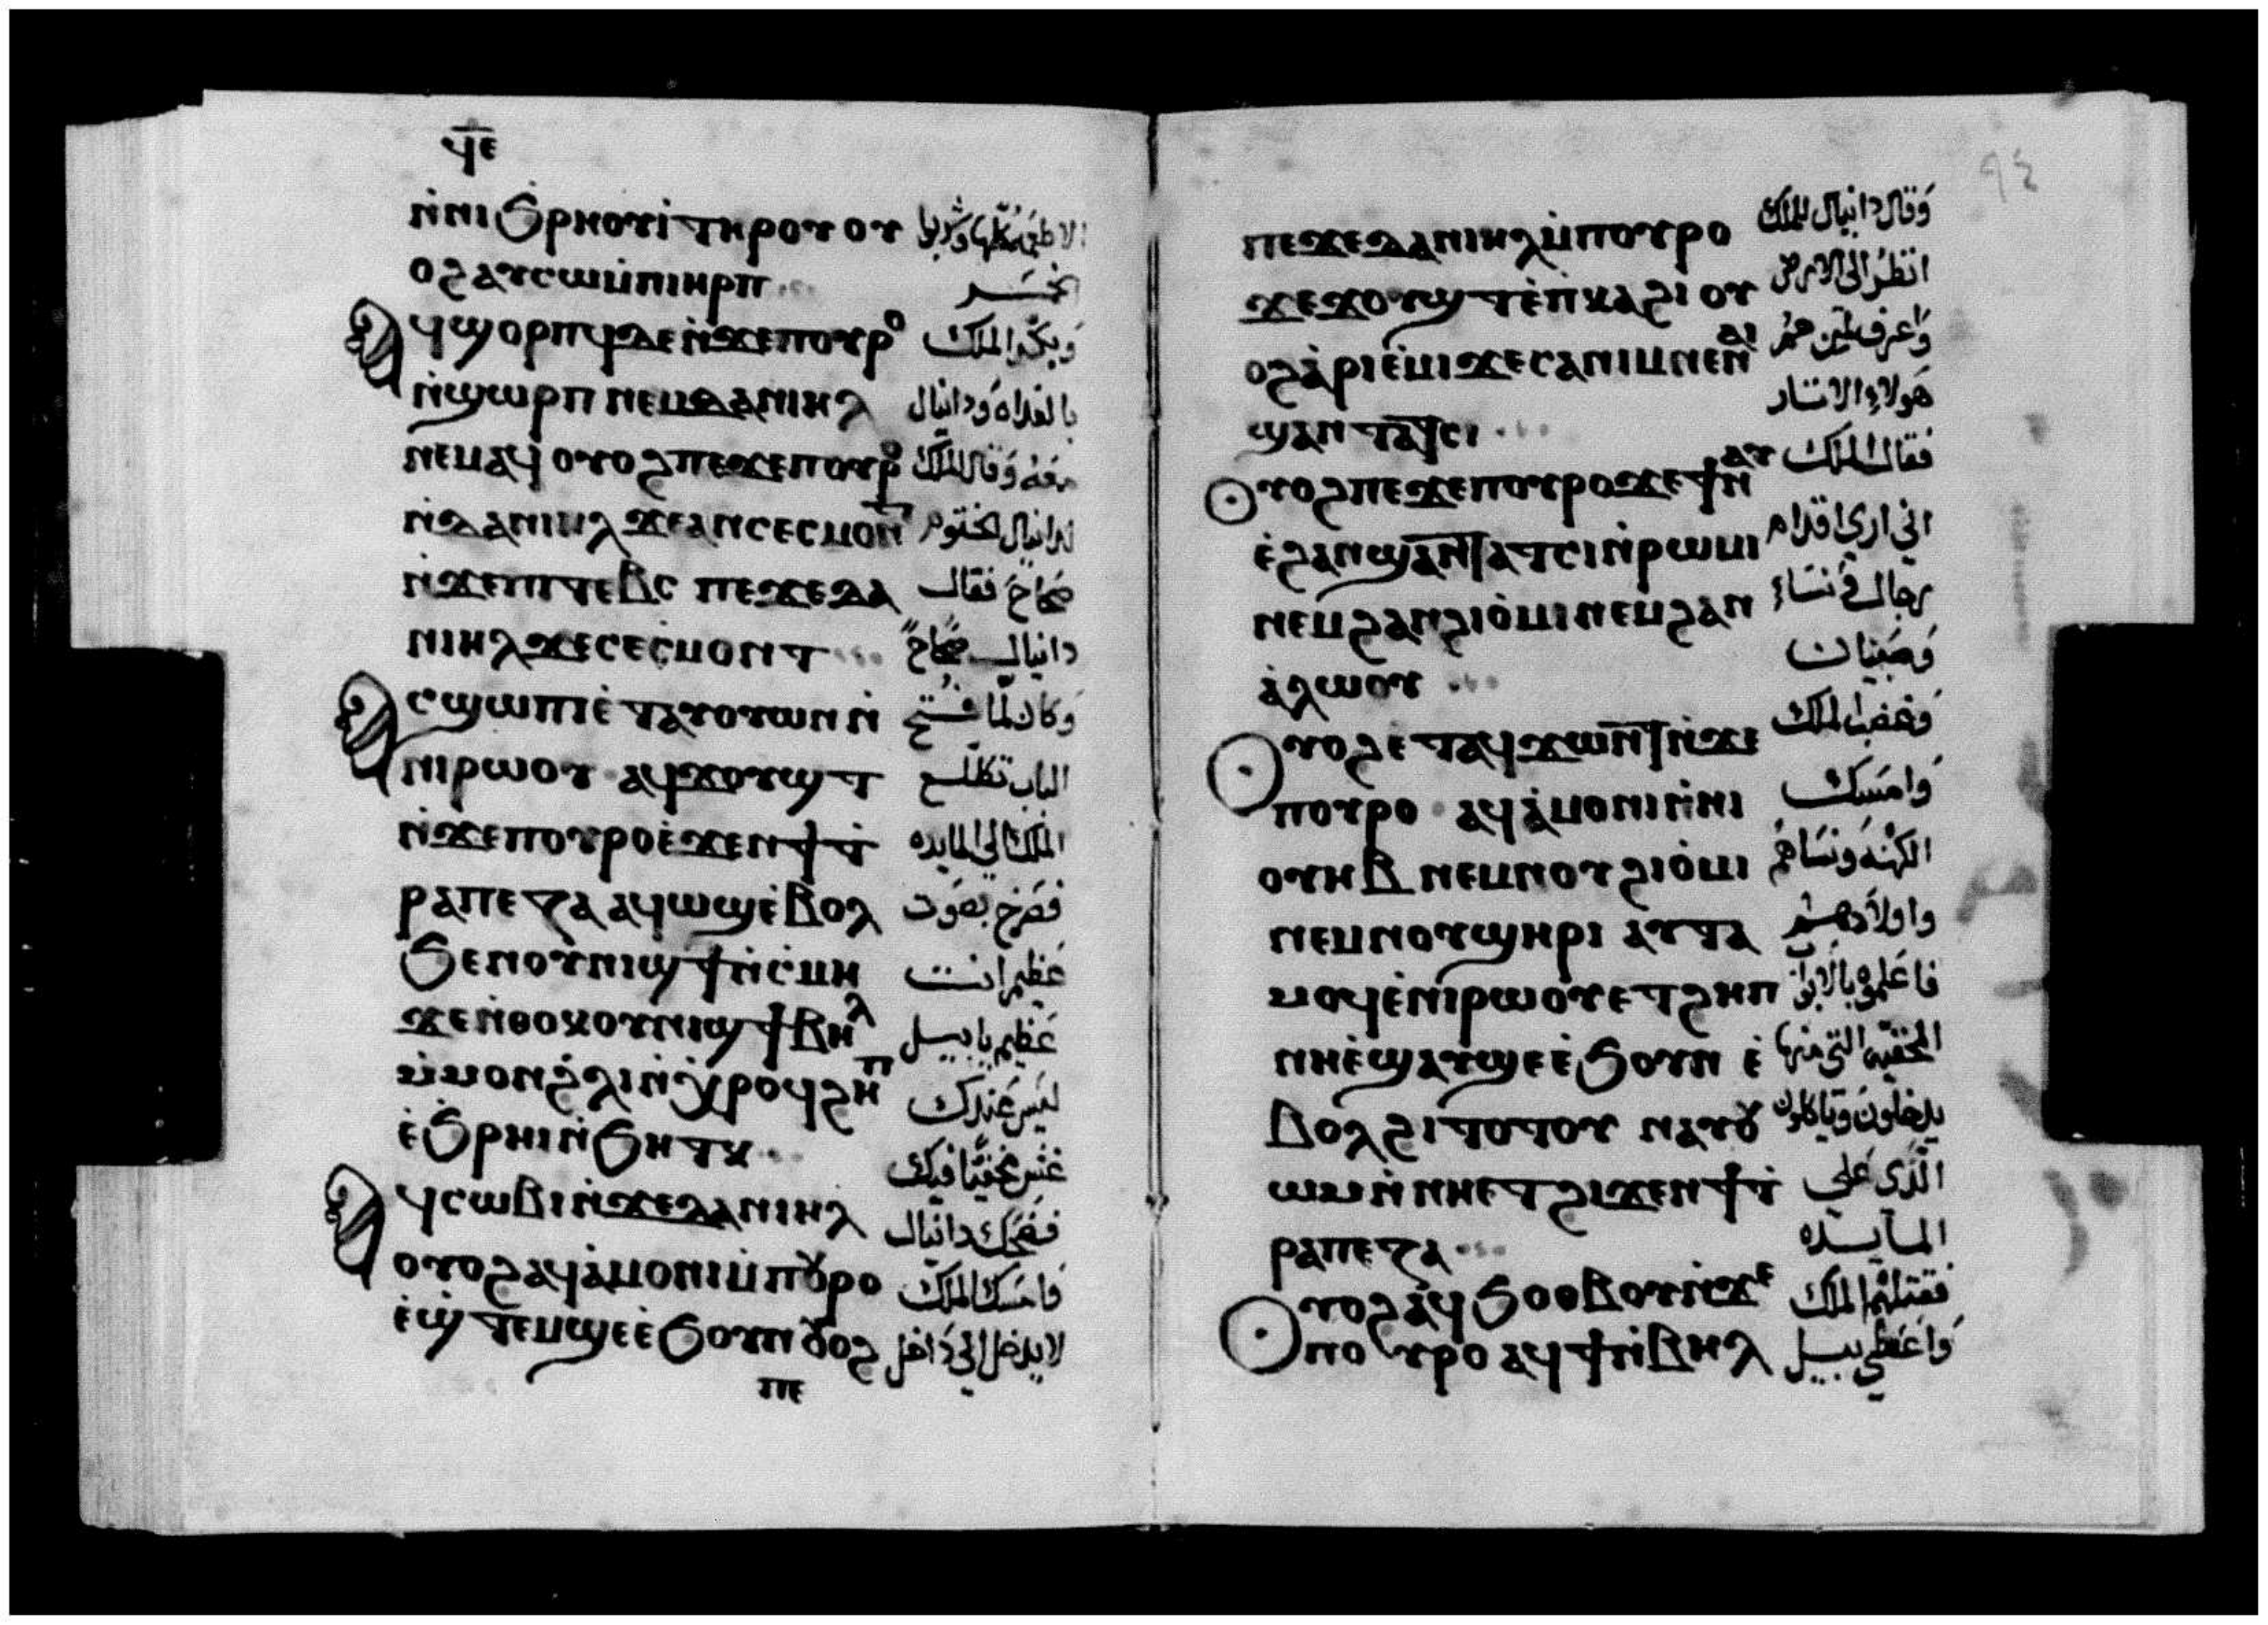 ϥⲉ
ⲛ̀ⲛⲓϧⲣⲏⲟⲩⲓ̀ ⲧⲏⲣⲟⲩ ⲟⲩ الاطعمه كلها وشربوا
ⲟϩ ⲁⲩⲥⲱ ⲙ̀ⲡⲓⲏⲣⲡ الخمر
ⲁϥϣⲟⲣⲡϥ ⲇⲉ ⲛ̀ϫⲉ ⲡⲟⲩⲣⲟ وبكر الملك
ⲛ̀ϣⲱⲣⲡ ⲛⲉⲙ ⲇⲁⲛⲓⲏⲗ بالغداه ودانيال
ⲛⲉⲙⲁϥ ⲟⲩⲟϩ ⲡⲉϫⲉ ⲡⲟⲩⲣⲟ معه وقال الملك
ⲛ̀ⲇⲁⲛⲓⲏⲗ ϫⲉ ⲁⲛ ⲥⲉⲥⲙⲟⲛⲧ لدانيال الختوم
ⲛ̀ϫⲉ ⲡⲓⲧⲉⲃⲥ ⲡⲉϫⲉ ⲇⲁ صحاح فقال
ⲛⲓⲏⲗ ϫⲉ ⲥⲉⲥ̀ⲙⲟⲛⲧ دانيال صحاح
ⲁⲥϣⲱⲡⲓ ⲉ̀ⲧⲁⲩⲟⲩⲱⲛ ⲛ̀ وكان لما فتح
ⲛⲓⲣⲱⲟⲩ ⲁϥϫⲟⲩϣⲧ الباب تطلع
ⲛ̀ϫⲉ ⲡⲟⲩⲣⲟ ⲉ̀ϫⲉⲛ ϯⲧ̀ الملك الي المايده
ⲣⲁⲡⲉⲍⲁ ⲁϥⲱϣ ⲉ̀ⲃⲟⲗ فصرخ بصوت
ϧⲉⲛ ⲟⲩⲛⲓϣϯ ⲛ̀ⲥ̀ⲙⲏ عظيم انت
ϫⲉ ⲛ̀ⲑⲟⲕ ⲟⲩⲛⲓϣϯ ⲃⲏⲗ عظيم يا بيل
ⲙ̀ⲙⲟⲛ ϩ̀ⲗⲓ ⲛ̀ⲭⲣⲟϥ ϩⲏⲡ ليس عندك
ⲉ̀ϧⲣⲏⲓ ⲛ̀ϧⲏⲧⲕ غش مخفيا فيك
ⲁϥⲥⲱⲃⲓ ⲛ̀ϫⲉ ⲇⲁⲛⲓⲏⲗ فضحك دانيال
ⲟⲩⲟϩ ⲁϥⲁ̀ⲙⲟⲛⲓ ⲙ̀ⲡⲟⲩⲣⲟ فامسك الملك
ⲉ̀ϣ̀ⲧⲉⲙϣⲉ ⲉ̀ϧⲟⲩⲛ ⲟⲩⲟϩ لا يدخل الي داخل
ⲡⲉ
٩٤
ⲡⲉϫⲉ ⲇⲁⲛⲓⲏⲗ ⲙ̀ⲡⲟⲩⲣⲟ وقال دانيال للملك
ϫⲉ ϫⲟⲩϣⲧ ⲉ̀ⲡⲕⲁϩⲓ ⲟⲩ انظر الي الارض
ⲟϩ ⲁ̀ⲣⲓⲉ̀ⲙⲓ ϫⲉ ⲥⲁ ⲛⲓⲙ ⲛⲉ ⲛⲁⲓ واعرف لمن هم
ϣⲁⲛⲧⲁⲧⲥⲓ هولاء الاثار
ⲟⲩⲟϩ ⲡⲉϫⲉ ⲡⲟⲩⲣⲟ ϫⲉ ϯⲛⲁⲩ فقال الملك
ⲉ̀ϩⲁⲛϣⲁⲛⲧⲁⲧⲥⲓ ⲛ̀ⲣⲱⲙⲓ اني اري اقدام
ⲛⲉⲙ ϩⲁⲛϩⲓⲟ̀ⲙⲓ ⲛⲉⲙ ϩⲁⲛ رجال ونساء
ⲁ̀ⲗⲱⲟⲩ وصبيان
ⲟⲩⲟϩ ⲉ̀ⲧⲁϥϫⲱⲛⲧ ⲛ̀ϫⲉ وغضب الملك
ⲡⲟⲩⲣⲟ ⲁϥⲁ̀ⲙⲟⲛⲓ ⲛ̀ⲛⲓ وامسك
ⲟⲩⲏⲃ ⲛⲉⲙ ⲛⲟⲩϩⲓⲟ̀ⲙⲓ الكهنه ونساهم
ⲛⲉⲙ ⲛⲟⲩϣⲏⲣⲓ ⲁⲩⲧⲁ واولادهم
ⲙⲟϥ ⲉ̀ⲛⲓⲣⲱⲟⲩ ⲉⲧϩⲏⲡ فاعلموه بالابواب
ⲛⲏ ⲉ̀ϣⲁⲩϣⲉ ⲉ̀ϧⲟⲩⲛ ⲉ̀ المخفيه التي منها
ⲃⲟⲗ ϩⲓⲧⲟⲧⲟⲩ ⲛⲁⲩⲟⲩ يدخلون وياكلون
ⲱⲙ ⲛ̀ⲛⲏ ⲉⲧϩⲓϫⲉⲛ ϯⲧ̀ الذي علي
ⲣⲁⲡⲉⲍⲁ المايده
ⲟⲩⲟϩ ⲁ̀ϥϧⲟⲑⲃⲟⲩ ⲛ̀ϫⲉ فقتلهم الملك
ⲡⲟⲩⲣⲟ ⲁϥϯ ⲛ̀ⲃⲏⲗ واعطي بيل